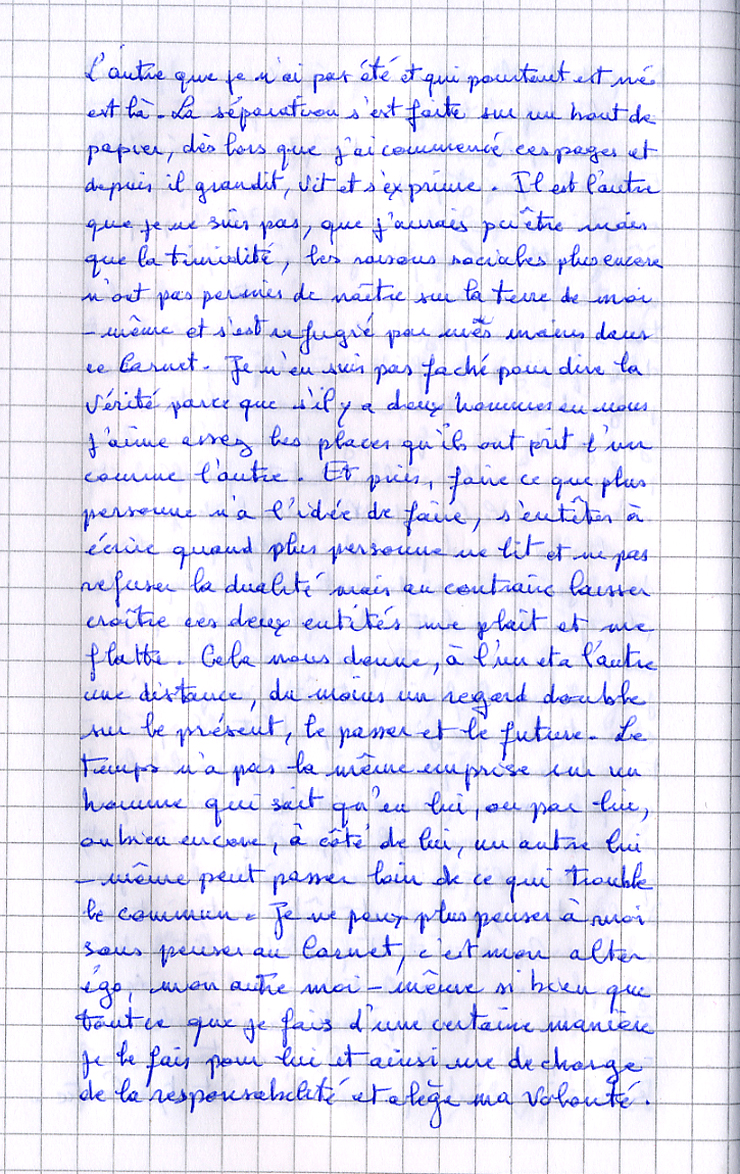 L'autre que je n'ai pas été et qui pourtant est né
est là. La séparation s'est faite sur un bout de
papier, dès lors que j'ai commencé ces pages et
depuis il grandit, vit et s'exprime. Il est l'autre
que je ne suis pas, que j'aurais pu être mais
que la timidité, les raisons sociales plus encore
n'ont pas permies de naître sur la terre de moi
-même et s'est refugié par mes mains dans
ce Carnet. Je n'en suis pas faché pour dire la
vérité parce que s'il y a deux hommes en nous
j'aime assez les places qu'ils ont prit l'un
comme l'autre. Et puis, faire ce que plus
personne n'a l'idée de faire, s'entêter à
écrire quand plus personne ne lit et ne pas
refuser la dualité mais au contraire laisser
croître ces deux entités me plait et me
flatte. Cela nous donne, à l'un et a l'autre
une distance, du moins un regard double
sur le présent, le passer et le future. Le
temps n'a pas la même emprise sur un
homme qui sait qu'en lui, ou par lui,
ou bien encore, à côté de lui, un autre lui
-même peut passer loin de ce qui trouble
le commun. Je ne peux plus penser à moi
sans penser au Carnet, c'est mon alter
égo, mon autre moi-même si bien que
tout ce que je fais d'une certaine manière
je le fais pour lui et ainsi me décharge
de la responsabilité et alège ma volonté.